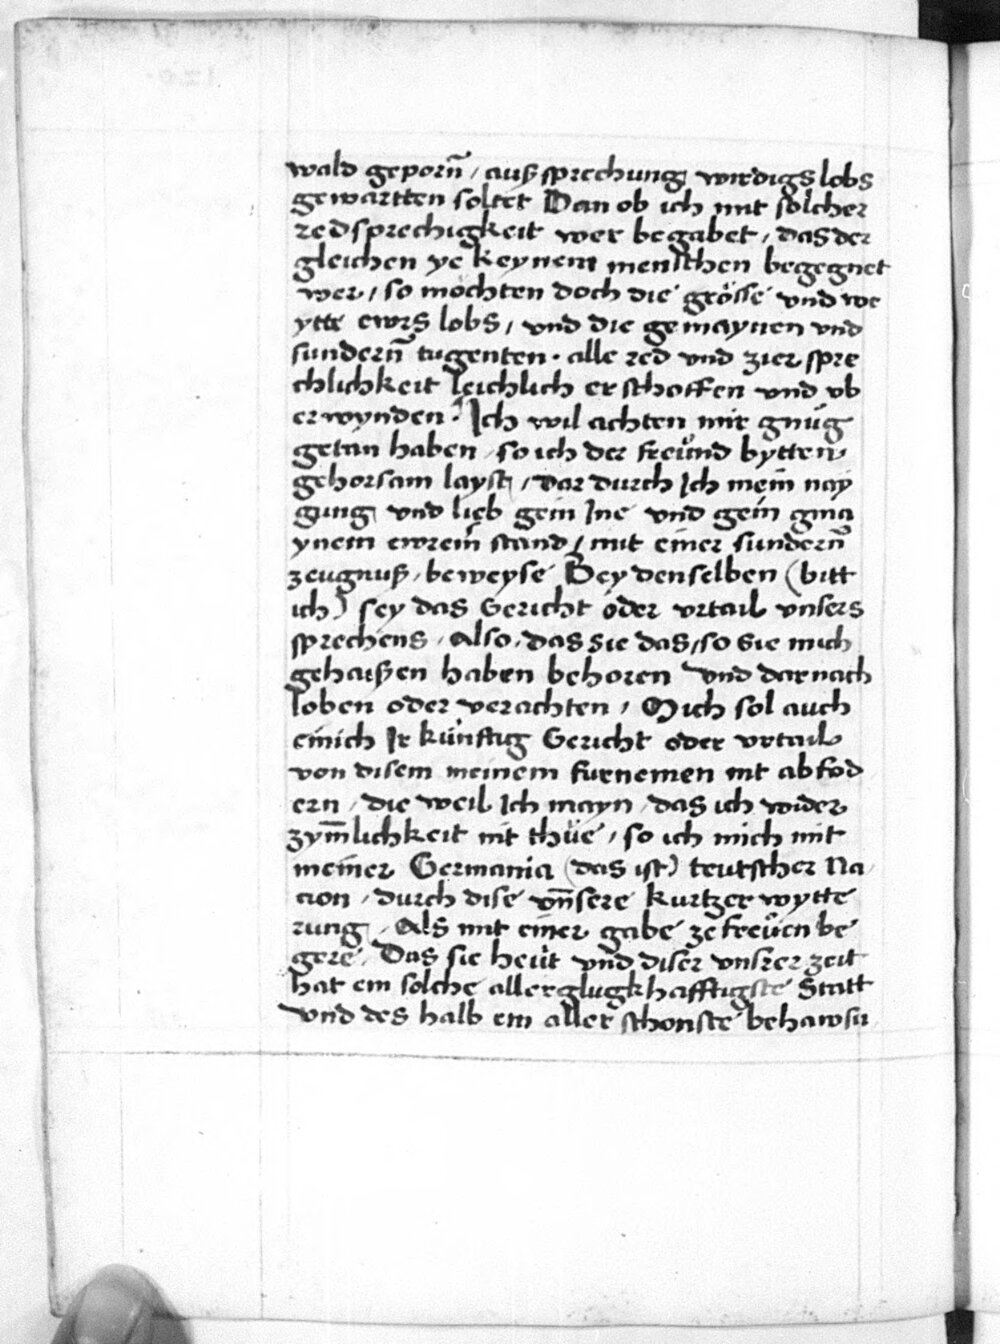 wald geporn̄ / auß sprechung wirdigs lobs
gewartten soltet Dan ob ich mit solcher
redsprechigkeit wer begabet / das der
gleichen ye keynem menschen begegnet
wer / so möchten doch die grösse vnd we
ytte ewrs lobs / vnd die gemaynen vnd
sundern̄ tugenten · alle red vnd zier spre
chlichkeit leichlich erschöffen vnd vb
erwynden · Ich wil achten mir gnüg
getan haben / so ich der freünd bytten
gehorsam layst / dar durch Ich mein nay
gung vnd lieb gein Ine vnd gein gma
ynem ewrem stand / mit einer sundern̄
zeugnuß / beweyse Bey denselben (bitt
ich) sey das Gericht oder vrtail vnsers
sprechens / Also / das sie das / so sie mich
gehaißen haben behoren vnd darnach
loben oder verachten / Mich sol auch
einich Ir künftig Gericht oder vrtail
von disem meinem furnemen nit abfod
ern / die weil Ich mayn / das ich wider
zym̄lichkeit nit thüe / so ich mich mit
meiner Germania (das ist) teutscher Na
cion / durch dise vn̄sere kurtzer wytte
rung / Als mit einer gabe ze freüen be
gere / Das sie heüt vnd diser vnsrer zeit
hat ein solche allerglugkhafftigste Statt
vnd des halb ein aller schonste behawsu